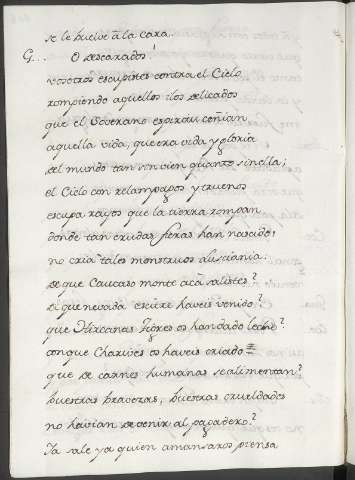 se le buelve a la cara.
G... O descarados!
vosotros escupistes contra el Cielo
rompiendo aquellos ilos delicados
que el Soverano espiritu ceñian
aquella vida, que era vida y gloria
del mundo tan sin vien quanto sinella;
el Cielo con relampagos y truenos
escupa rayos que la tierra rompan
donde tan crudas fieras han nascido;
no cria tales monstruos
de que Caucaso monte acá salistes?
di que nevada escitre haveis venido?
que Hircanas tigres os han dado leche?
con que Charives os haveis criado
que de carnes humanas se alimentan?
buestras bravezas, buestras crueldades
no havian de venir al pagadero?
Ya sale ya quien amansaros piensa